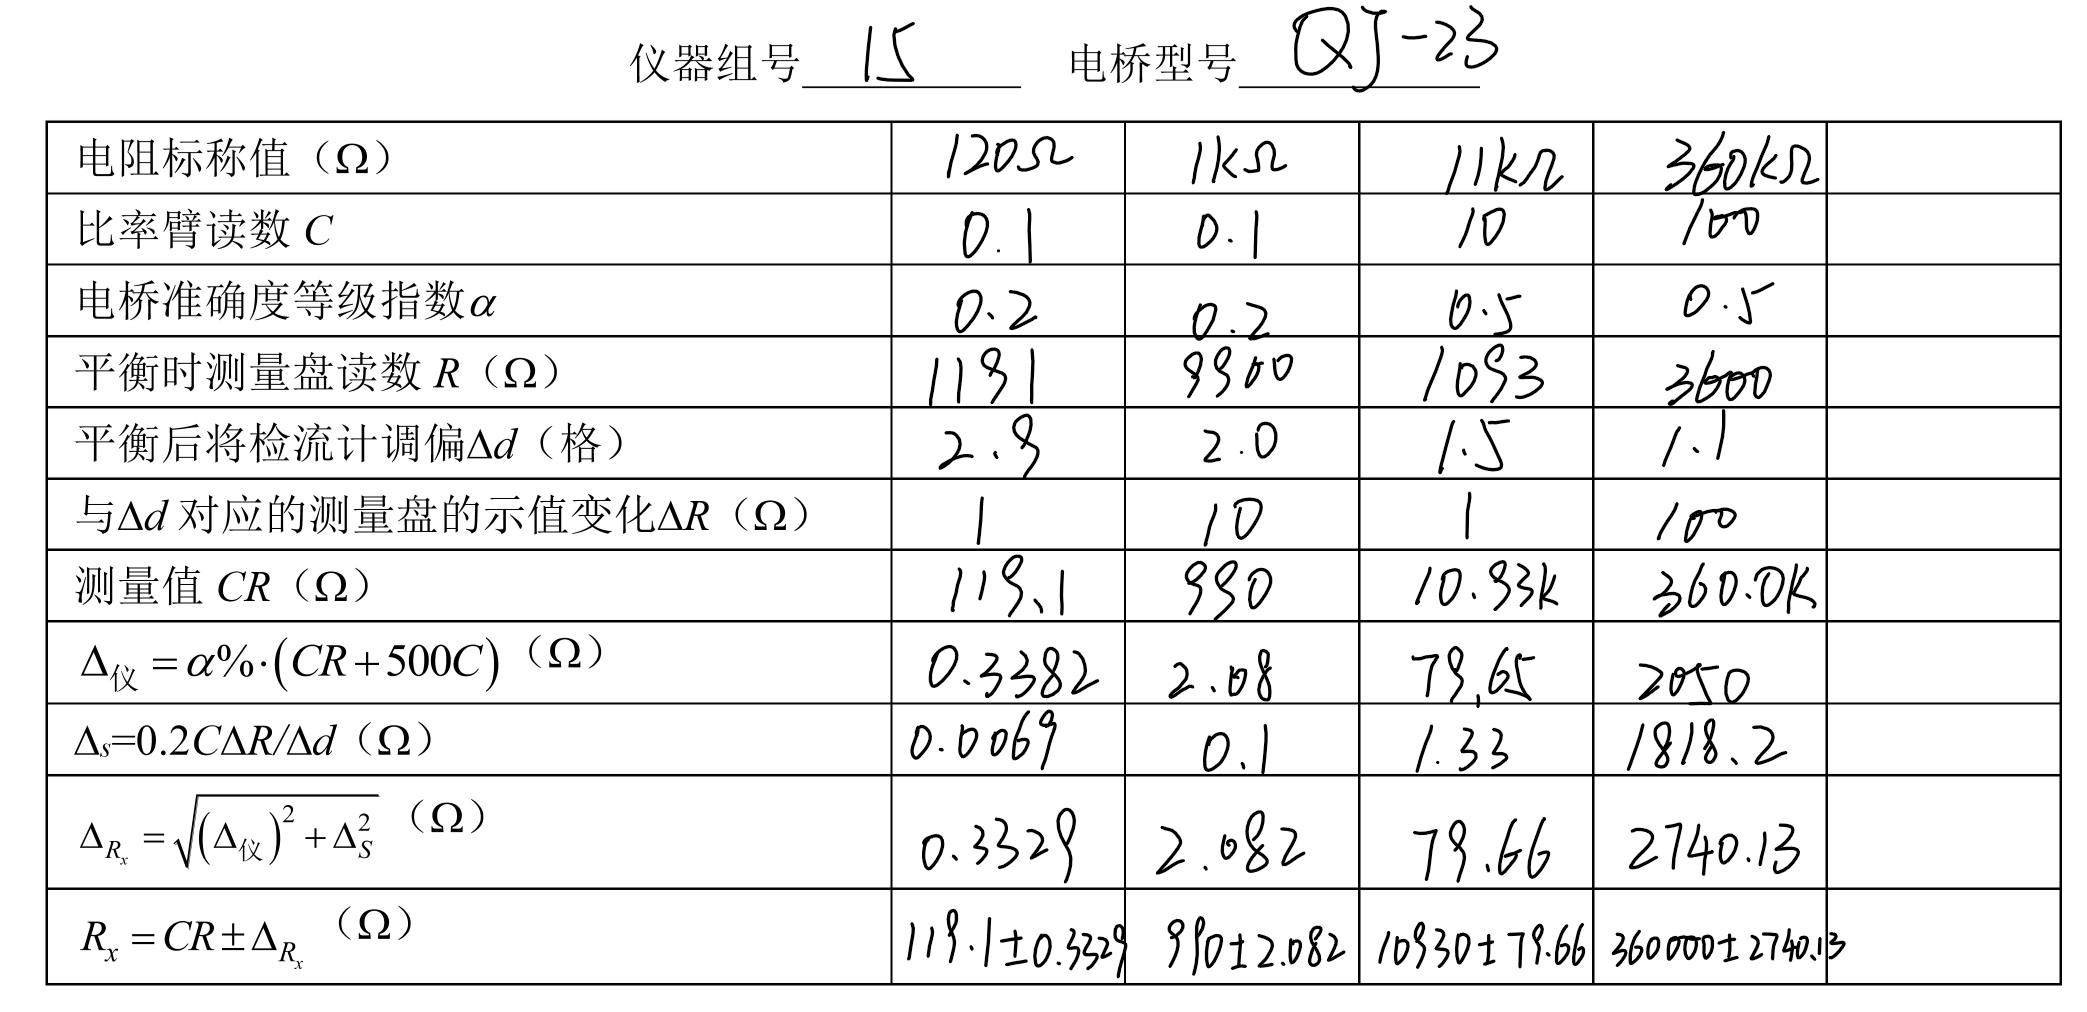 仪器组号 15 电桥型号 QJ-23
电阻标称值（Ω） 120Ω 1kΩ 11kΩ 360kΩ
比率臂读数 C 0.1 0.1 10 100
电桥准确度等级指数α 0.2 0.2 0.5 0.5
平衡时测量盘读数 R（Ω） 1191 9900 1093 3600
平衡后将检流计调偏Δd（格） 2.9 2.0 1.5 1.1
与Δd 对应的测量盘的示值变化ΔR（Ω） 1 10 1 100
测量值 CR（Ω） 119.1 990 10.93k 360.0K
Δ仪 = α%·(CR+500C)（Ω） 0.3382 2.08 79.65 2050
Δs=0.2CΔR/Δd（Ω） 0.0069 0.1 1.33 1818.2
ΔRx = √((Δ仪)² + ΔS²)（Ω） 0.3329 2.082 79.66 2740.13
Rx = CR ± ΔRx（Ω） 119.1±0.3329 990±2.082 10930±79.66 360000±2740.13